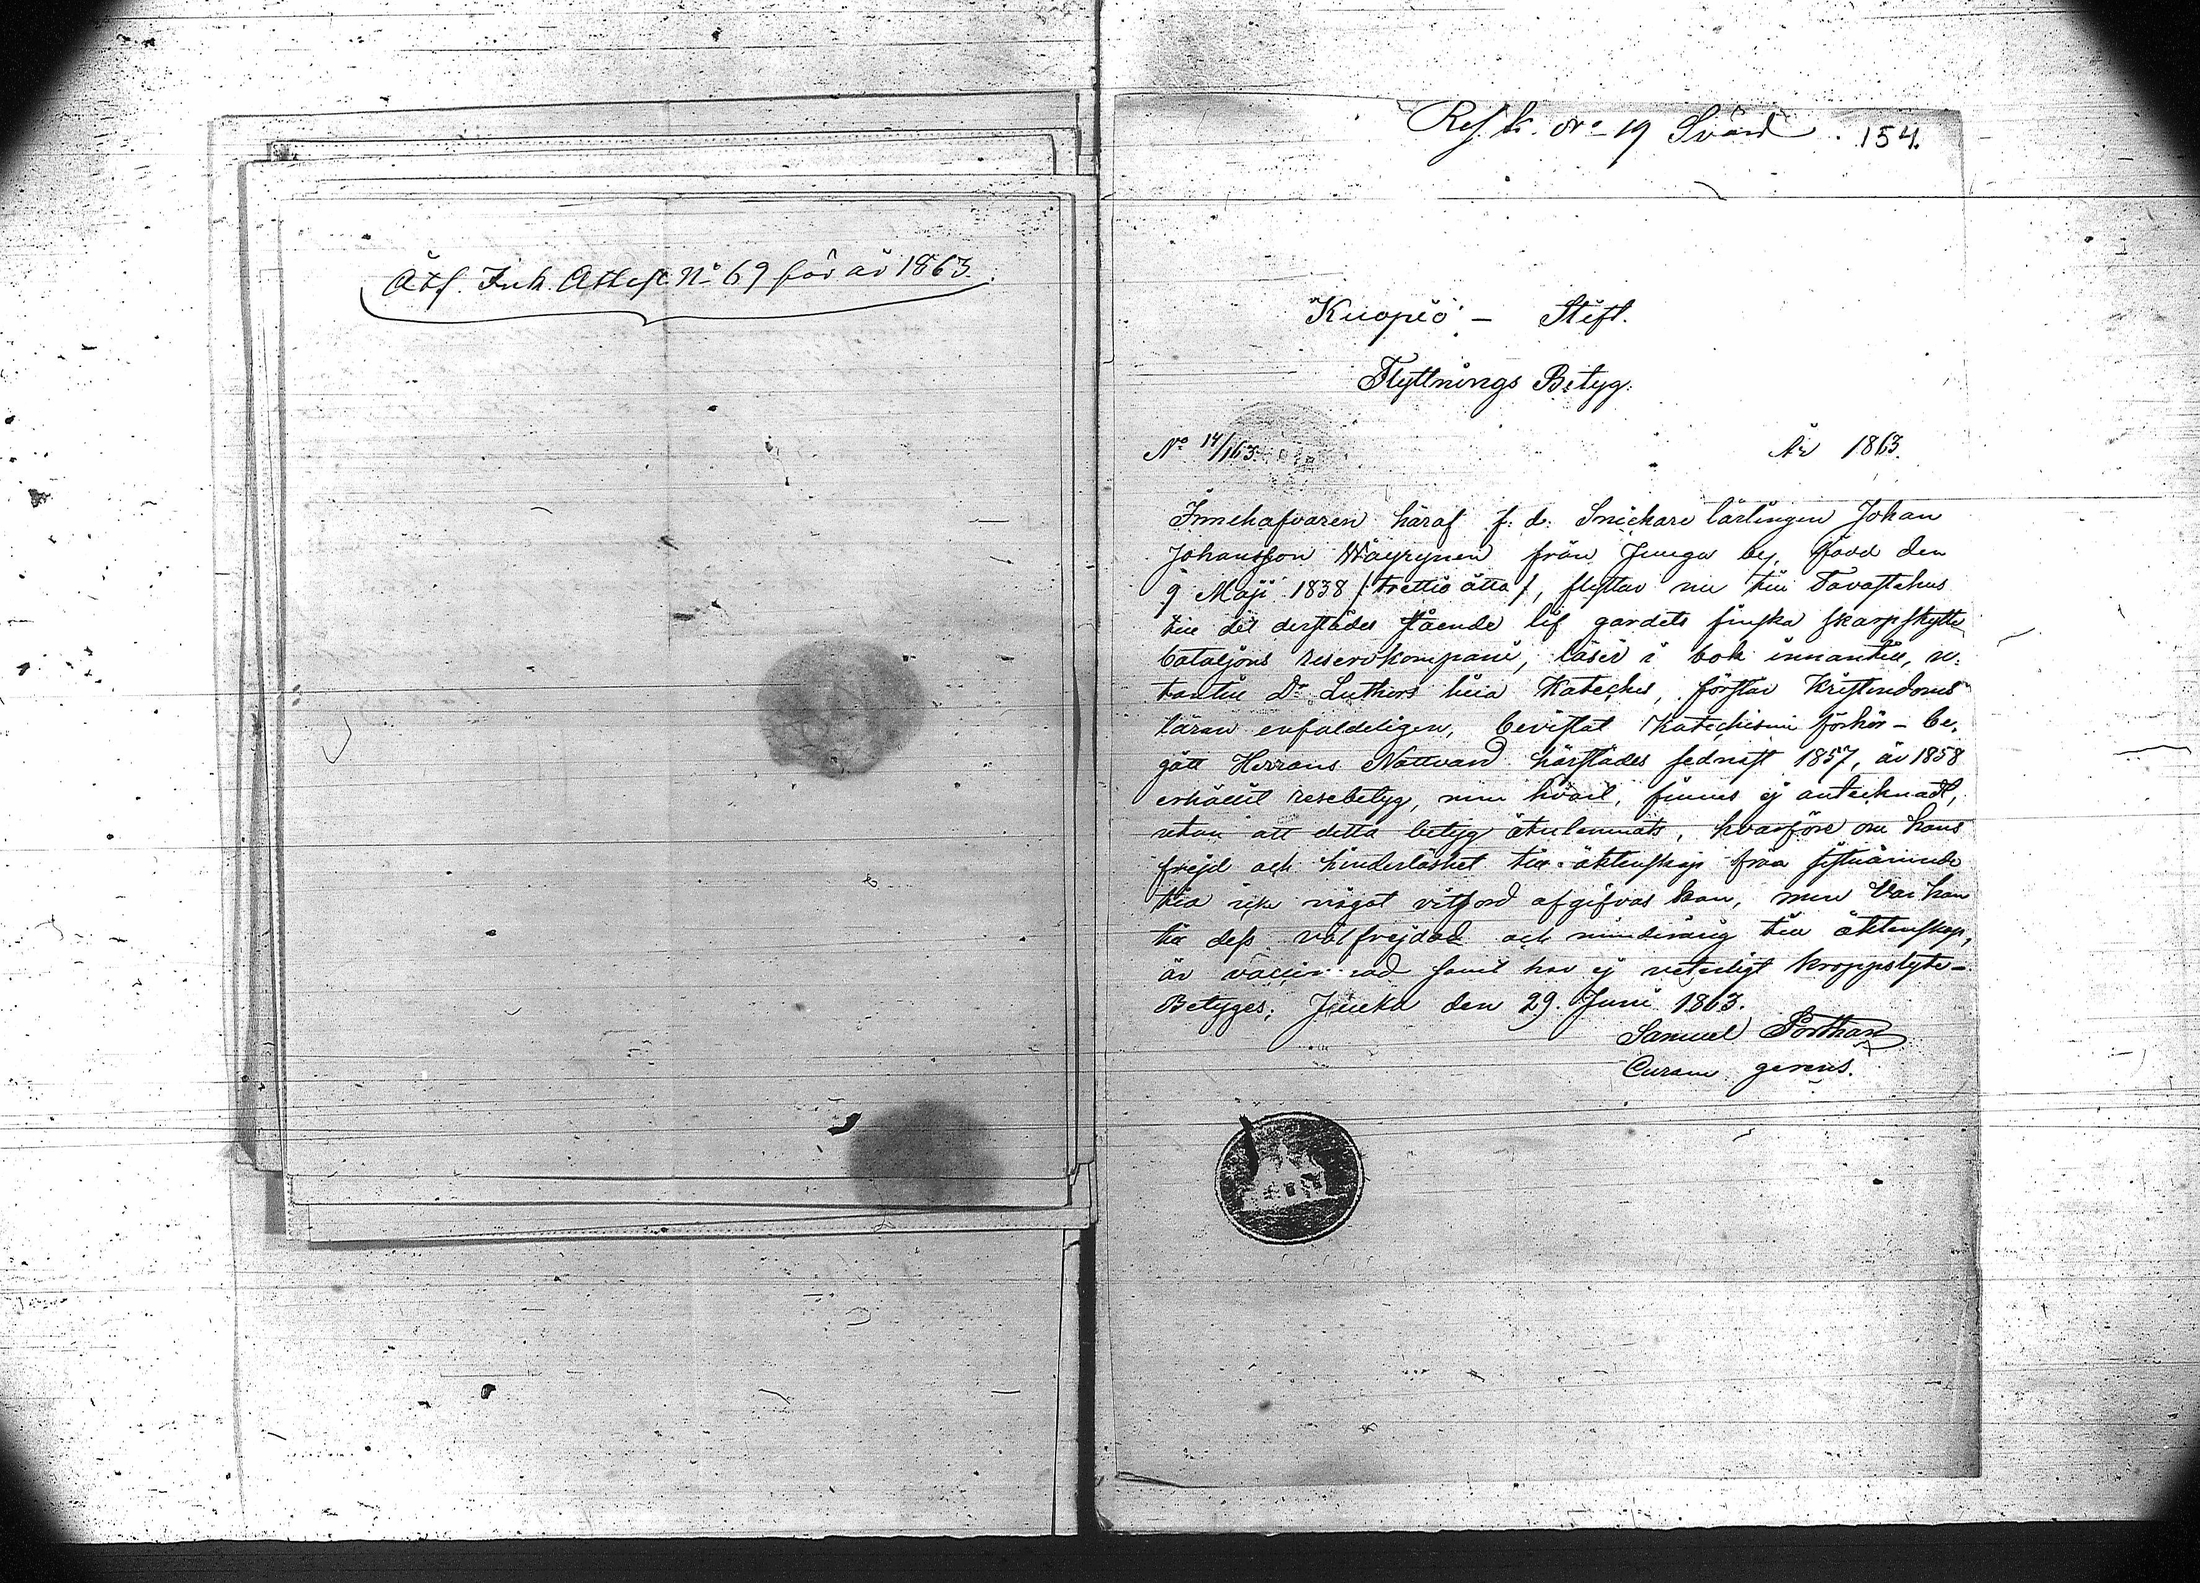 Åtf. Ink. Attest No 69 för år 1863.
Res. k. No 19 Svärd. 154.
Kuopio - Stift.
Flyttnings Betyg.
No 14/163. År 1863.
Innehafvaren häraf f. d. Snickare lärlingen Johan
Johansson Wäyrynen från Junga by, född den
9 Maji 1838 /: trettio åtta /, flyttar nu till Tavastehus
till det derstädes stående lif gardets finska skarpskytte
bataljons reservkompani, läser i bok innantill, u-
tantill Dr Luthers lilla Kateches, förstår Kristendoms
läran enfaldeligen, bevistat Katechismi förhör - be-
gått Herrans Nattvard härstädes sednast 1857, år 1858
erhållit resebetyg, men hvart, finnes ej antecknadt,
utan att detta betyg återlemnats, hvarföre om hans
frejd och hinderlöshet till äktenskap från sistnämnde
tid icke något vitsord afgifvas kan, men var han
till dess välfrejdad och minderårig till äktenskap,
är vaccinerad samt har ej veterligt kroppslyte -
Betygas, Juuka den 29. Juni 1863.
Samuel Porthan
Curam gerens.